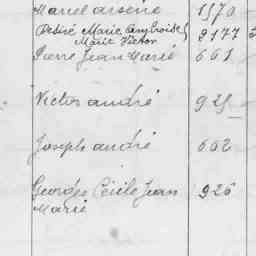 Marcel arsène 1570
Désiré Marie Ambroise 2177
Marie Victor
Pierre Jean Marie 661
Victor andré 925
Joseph andré 662
Georges Cécile Jean 926
Marie